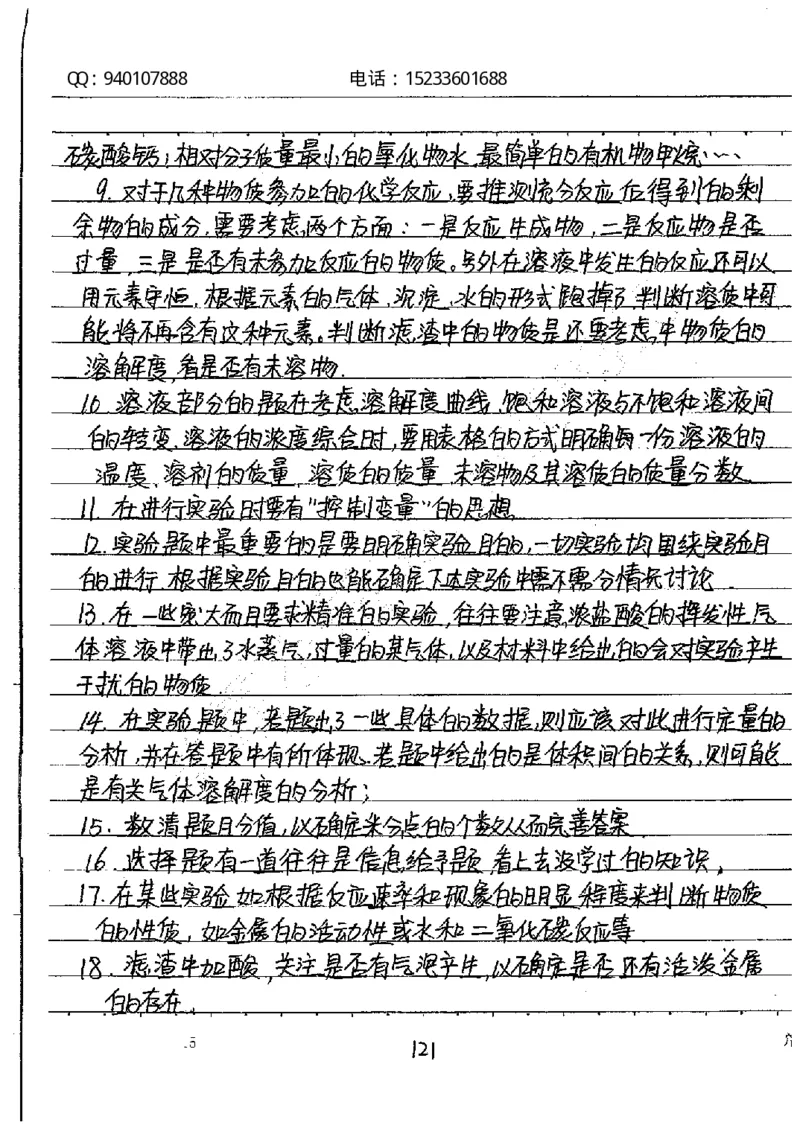 QQ：940107888 电话：15233601688
碳酸钙；相对分子质量最小的氧化物水，最简单的有机物甲烷……
9. 对于几种物质参加的化学反应，要推测充分反应后得到的剩
余物的成分，需要考虑两个方面：一是反应生成物，二是反应物是否
过量，三是是否有未参加反应的物质。另外在溶液中发生的反应还可以
用元素守恒，根据元素的气体，沉淀，水的形式跑掉了判断溶质中可
能将不再含有这种元素。判断滤渣中的物质是还要考虑中物质的
溶解度，看是否有未溶物.
10. 溶液部分的题在考虑溶解度曲线、饱和溶液与不饱和溶液间
的转变、溶液的浓度综合时，要用表格的方式明确每一份溶液的
温度、溶剂的质量，溶质的质量，未溶物及其溶质的质量分数.
11. 在进行实验时要有“控制变量”的思想
12. 实验题中最重要的是要明确实验目的，一切实验均围绕实验目
的进行，根据实验目的也能确定下本实验中需不需分情况讨论.
13. 在一些宽大而且要求精准的实验，往往要注意浓盐酸的挥发性，气
体溶液中带出了水蒸气，过量的某气体，以及材料中给出的会对实验产生
干扰的物质.
14. 在实验题中，若题出了一些具体的数据，则应该对此进行定量的
分析，并在答题中有所体现。若题中给出的是体积间的关系，则可能
是有关气体溶解度的分析；
15. 数清题目分值，以确定采分点的个数从而完善答案
16. 选择题有一道往往是信息给予题，看上去没学过的知识，
17. 在某些实验如根据反应速率和现象的明显程度来判断物质
的性质，如金属的活动性或水和二氧化碳反应等
18. 滤渣中加酸，关注是否有气泡产生，以确定是否还有活泼金属
的存在.
.5
121